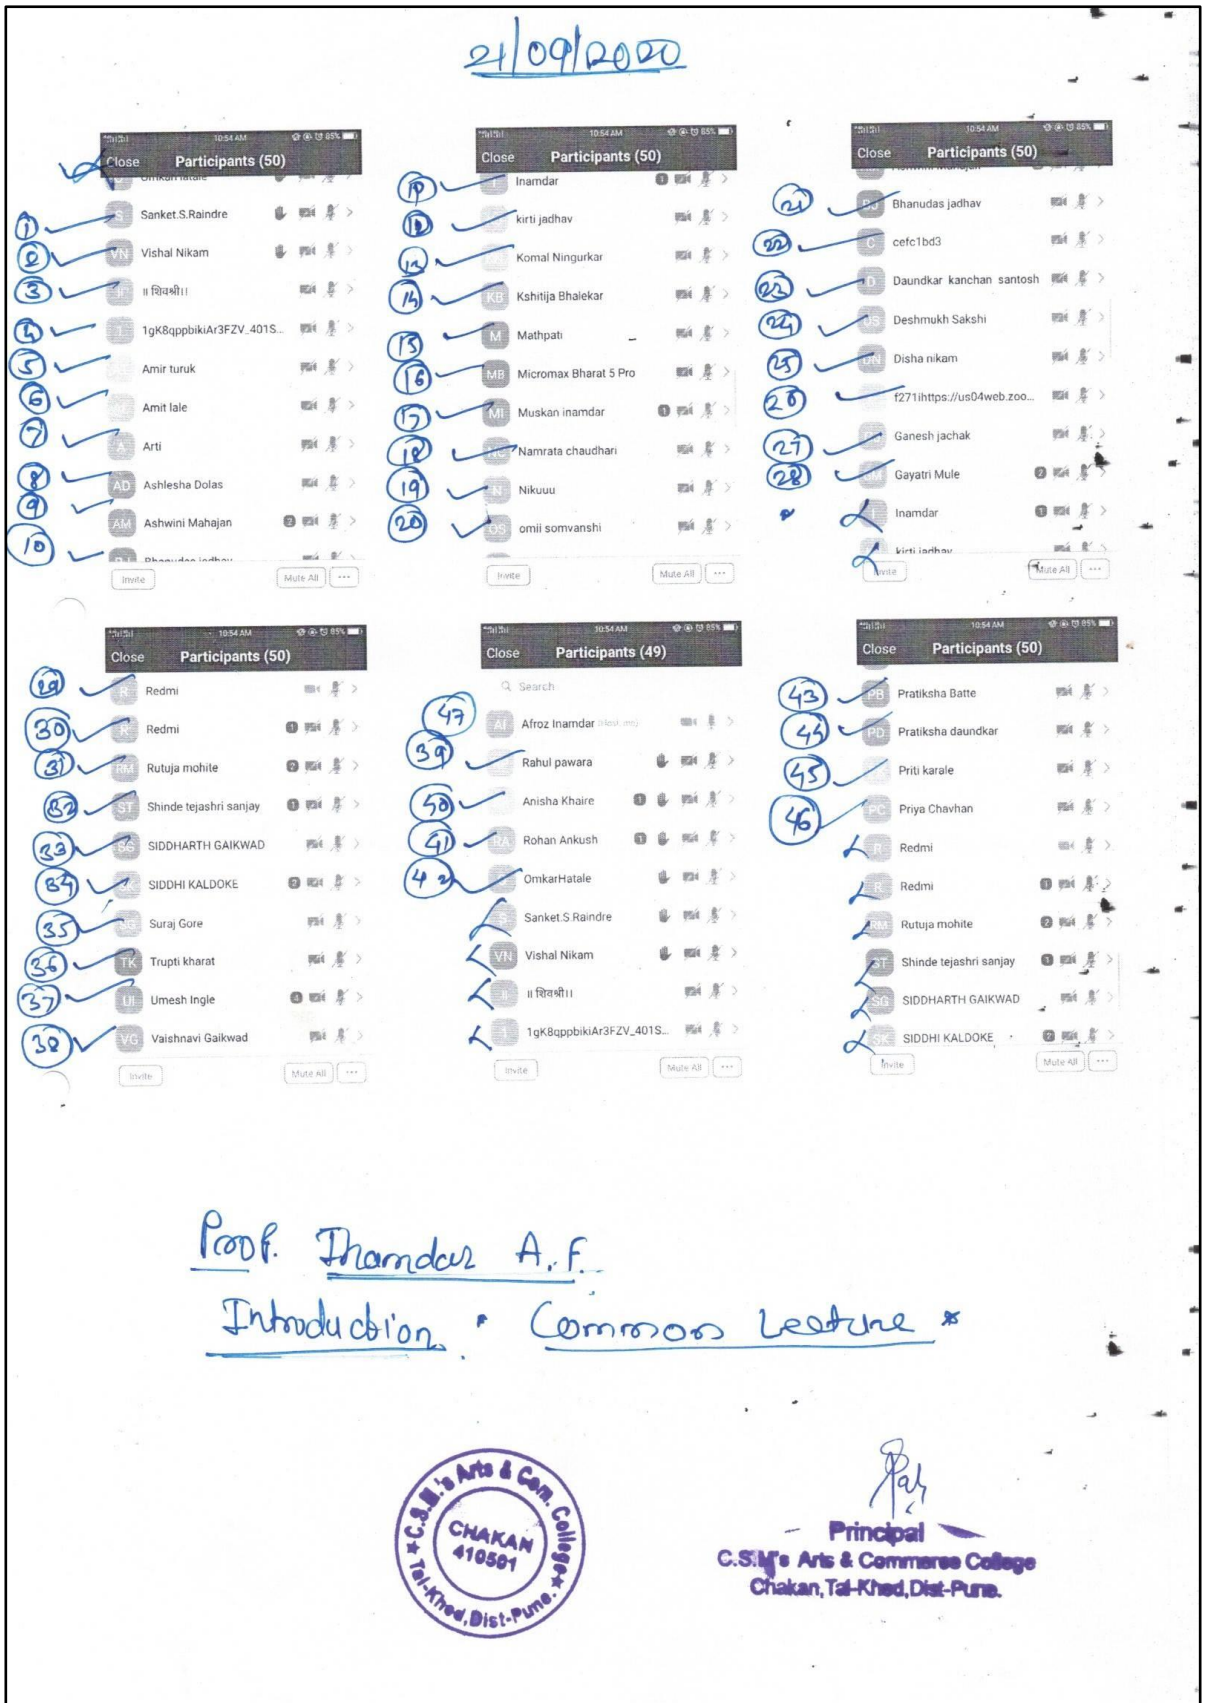 21/09/2020
10:54 AM 85%
Close Participants (50)
1 Sanket.S.Raindre
2 VN Vishal Nikam
3 ॥ शिवश्री।।
4 1gK8qppbikiAr3FZV_401S...
5 Amir turuk
6 Amit lale
7 A Arti
8 AD Ashlesha Dolas
9 AM Ashwini Mahajan 2
10 BJ Bhanudas jadhav
Invite Mute All ...
10:54 AM 85%
Close Participants (50)
I Inamdar 1
kirti jadhav
Komal Ningurkar
14 KB Kshitija Bhalekar
15 M Mathpati
16 MB Micromax Bharat 5 Pro
17 MI Muskan inamdar 1
18 NC Namrata chaudhari
19 N Nikuuu
20 OS omii somvanshi
Invite Mute All ...
10:54 AM 85%
Close Participants (50)
21 BJ Bhanudas jadhav
22 C cefc1bd3
23 D Daundkar kanchan santosh
24 DS Deshmukh Sakshi
25 DN Disha nikam
26 f271ihttps://us04web.zoo...
27 Ganesh jachak
28 GM Gayatri Mule 2
I Inamdar 1
kirti jadhav
Invite Mute All ...
10:54 AM 85%
Close Participants (50)
29 R Redmi
30 R Redmi 1
31 RM Rutuja mohite 2
32 ST Shinde tejashri sanjay 1
33 SG SIDDHARTH GAIKWAD
34 SK SIDDHI KALDOKE 2
35 SG Suraj Gore
36 TK Trupti kharat
37 UI Umesh Ingle 4
38 VG Vaishnavi Gaikwad
Invite Mute All ...
10:54 AM 85%
Close Participants (49)
Search
47 AI Afroz Inamdar
39 Rahul pawara
40 Anisha Khaire 1
41 RA Rohan Ankush 1
42 OmkarHatale
S Sanket.S.Raindre
VN Vishal Nikam
॥ शिवश्री।।
1 1gK8qppbikiAr3FZV_401S...
Invite Mute All ...
10:54 AM 85%
Close Participants (50)
43 PB Pratiksha Batte
44 PD Pratiksha daundkar
45 Priti karale
46 PC Priya Chavhan
R Redmi
R Redmi 1
RM Rutuja mohite 2
ST Shinde tejashri sanjay 1
SG SIDDHARTH GAIKWAD
SK SIDDHI KALDOKE 2
Invite Mute All ...
Prof. Inamdar A.F.
Introduction. Common Lecture *
C.S.M.'s Arts & Com. College
CHAKAN
410501
Tal-Khed, Dist-Pune.
Principal
C.S.M's Arts & Commerce College
Chakan, Tal-Khed, Dist-Pune.